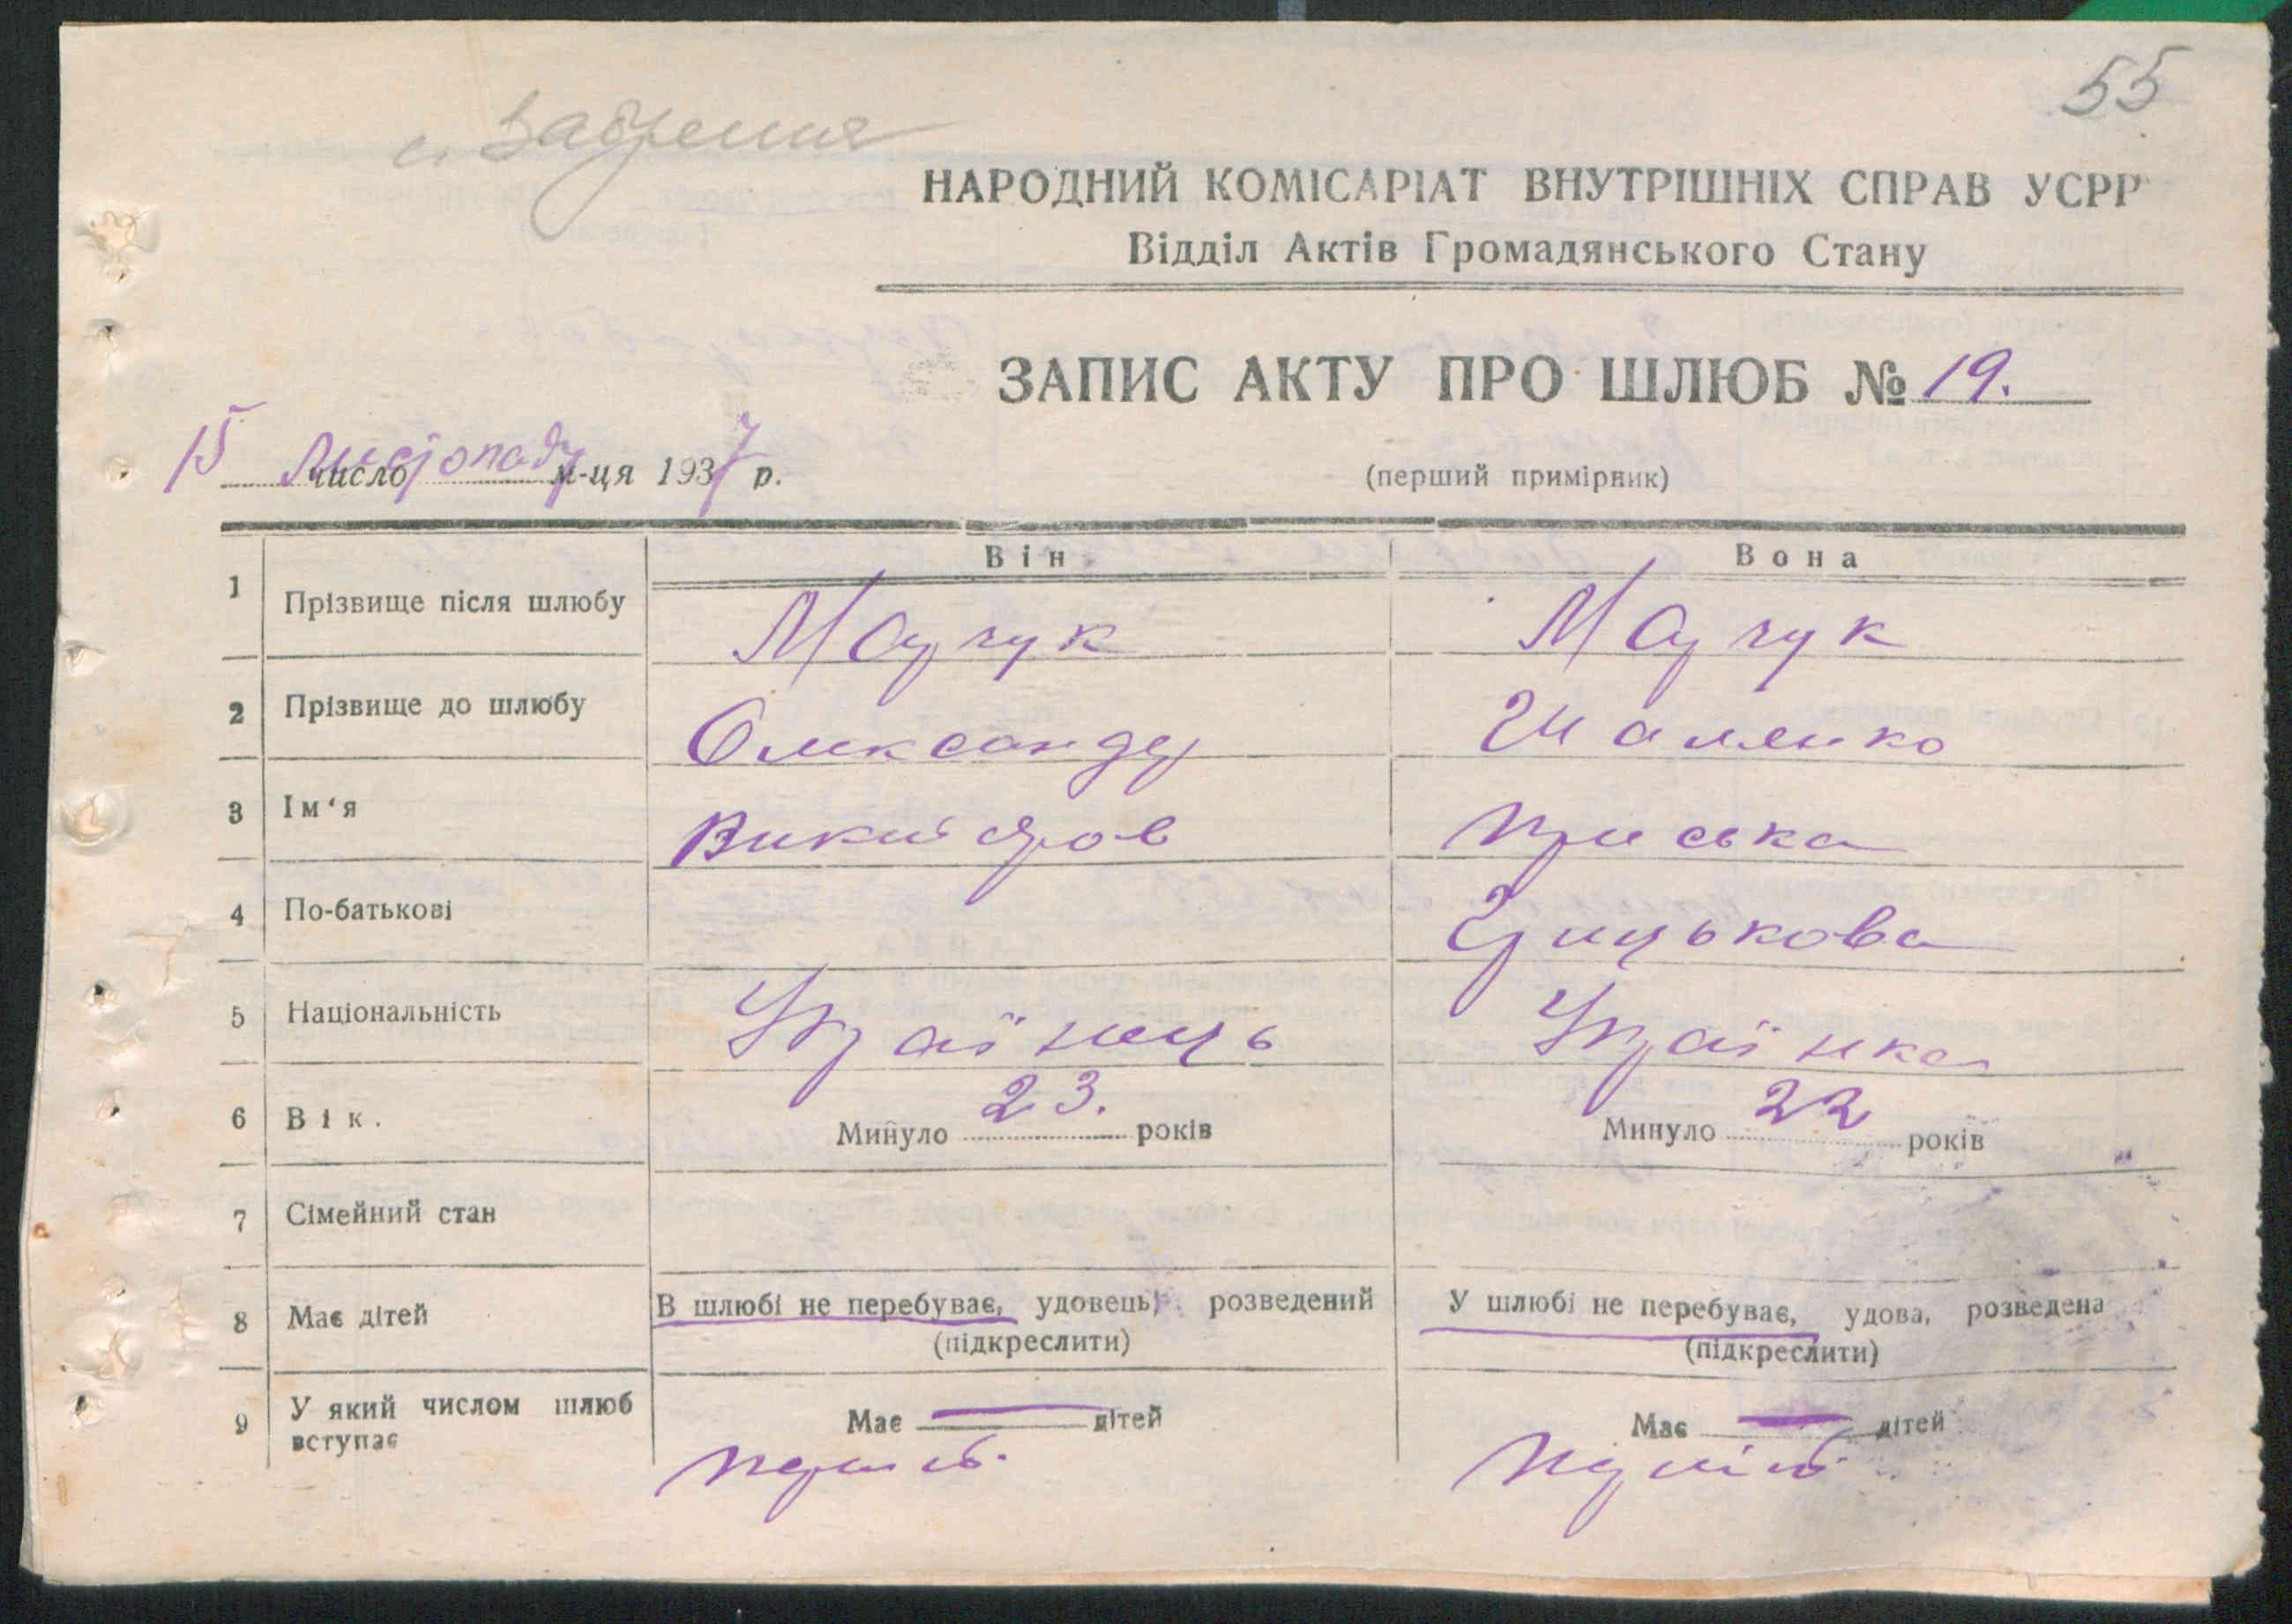 55
НАРОДНИЙ КОМІСАРІАТ ВНУТРІШНІХ СПРАВ УСРР
Відділ Актів Громадянського Стану
ЗАПИС АКТУ ПРО ШЛЮБ № 19.
15 число листопаду м-ця 1937 р.
(перший примірник)
Він Вона
1 Прізвище після шлюбу Марчук Марчук
2 Прізвище до шлюбу Олександр
3 Ім'я Приська
4 По-батькові Грицькова
5 Національність Українець Українка
6 Вік. Минуло 23. років Минуло 22 років
7 Сімейний стан
8 Має дітей В шлюбі не перебуває, удовець, розведений У шлюбі не перебуває, удова, розведена
(підкреслити) (підкреслити)
9 У який числом шлюб вступає Має — дітей Має — дітей